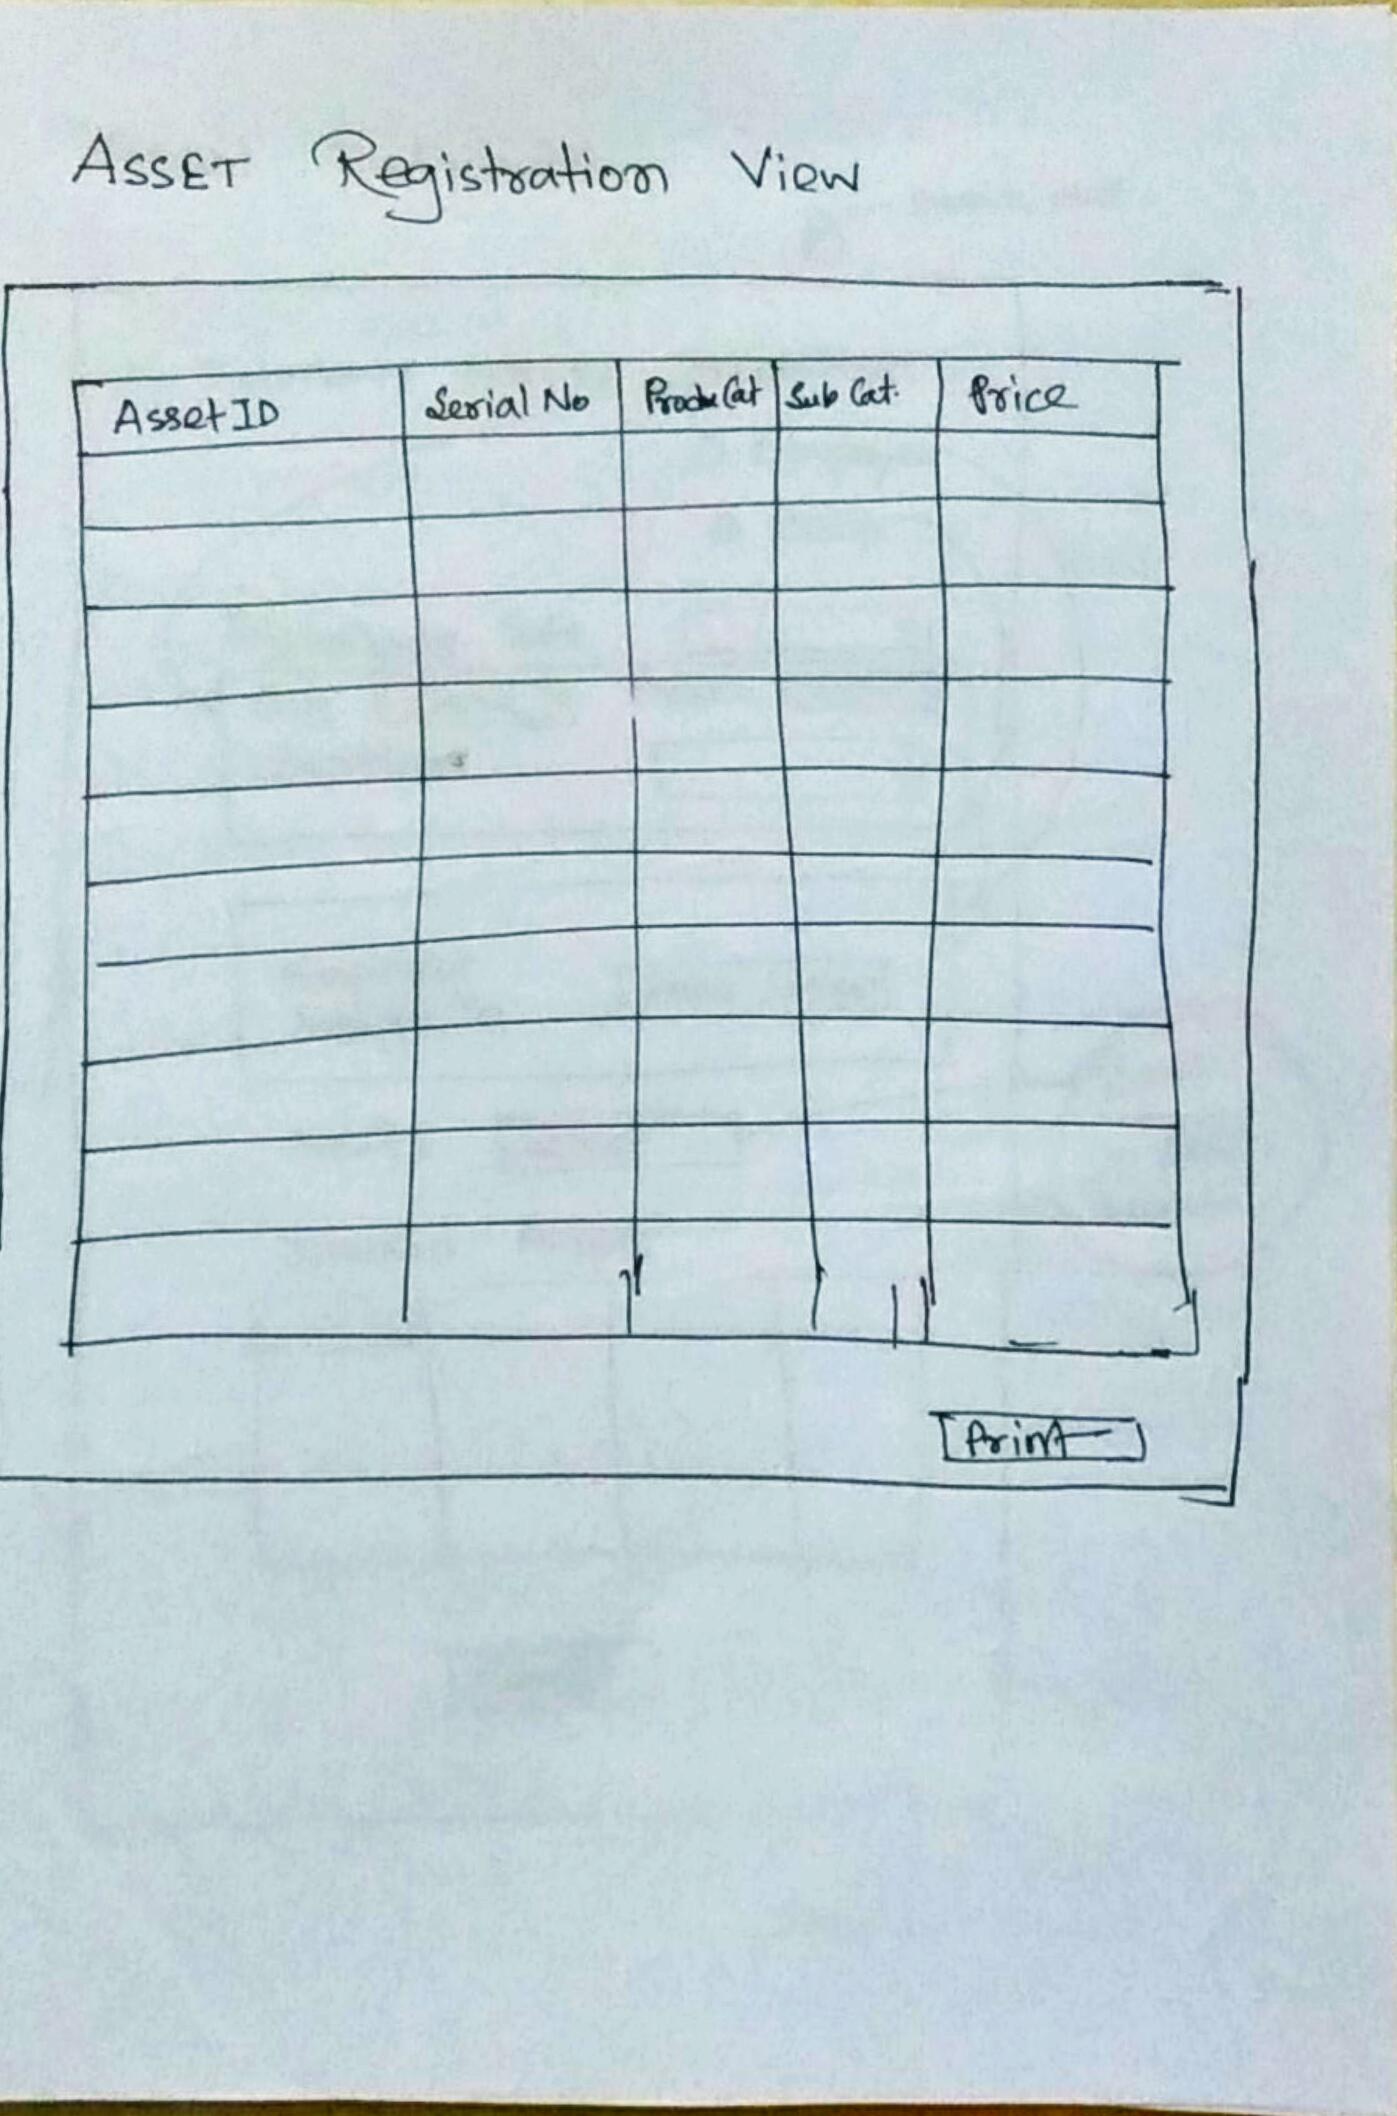 ASSET Registration View
Asset ID Serial No Produ Cat Sub Cat. Price
Print